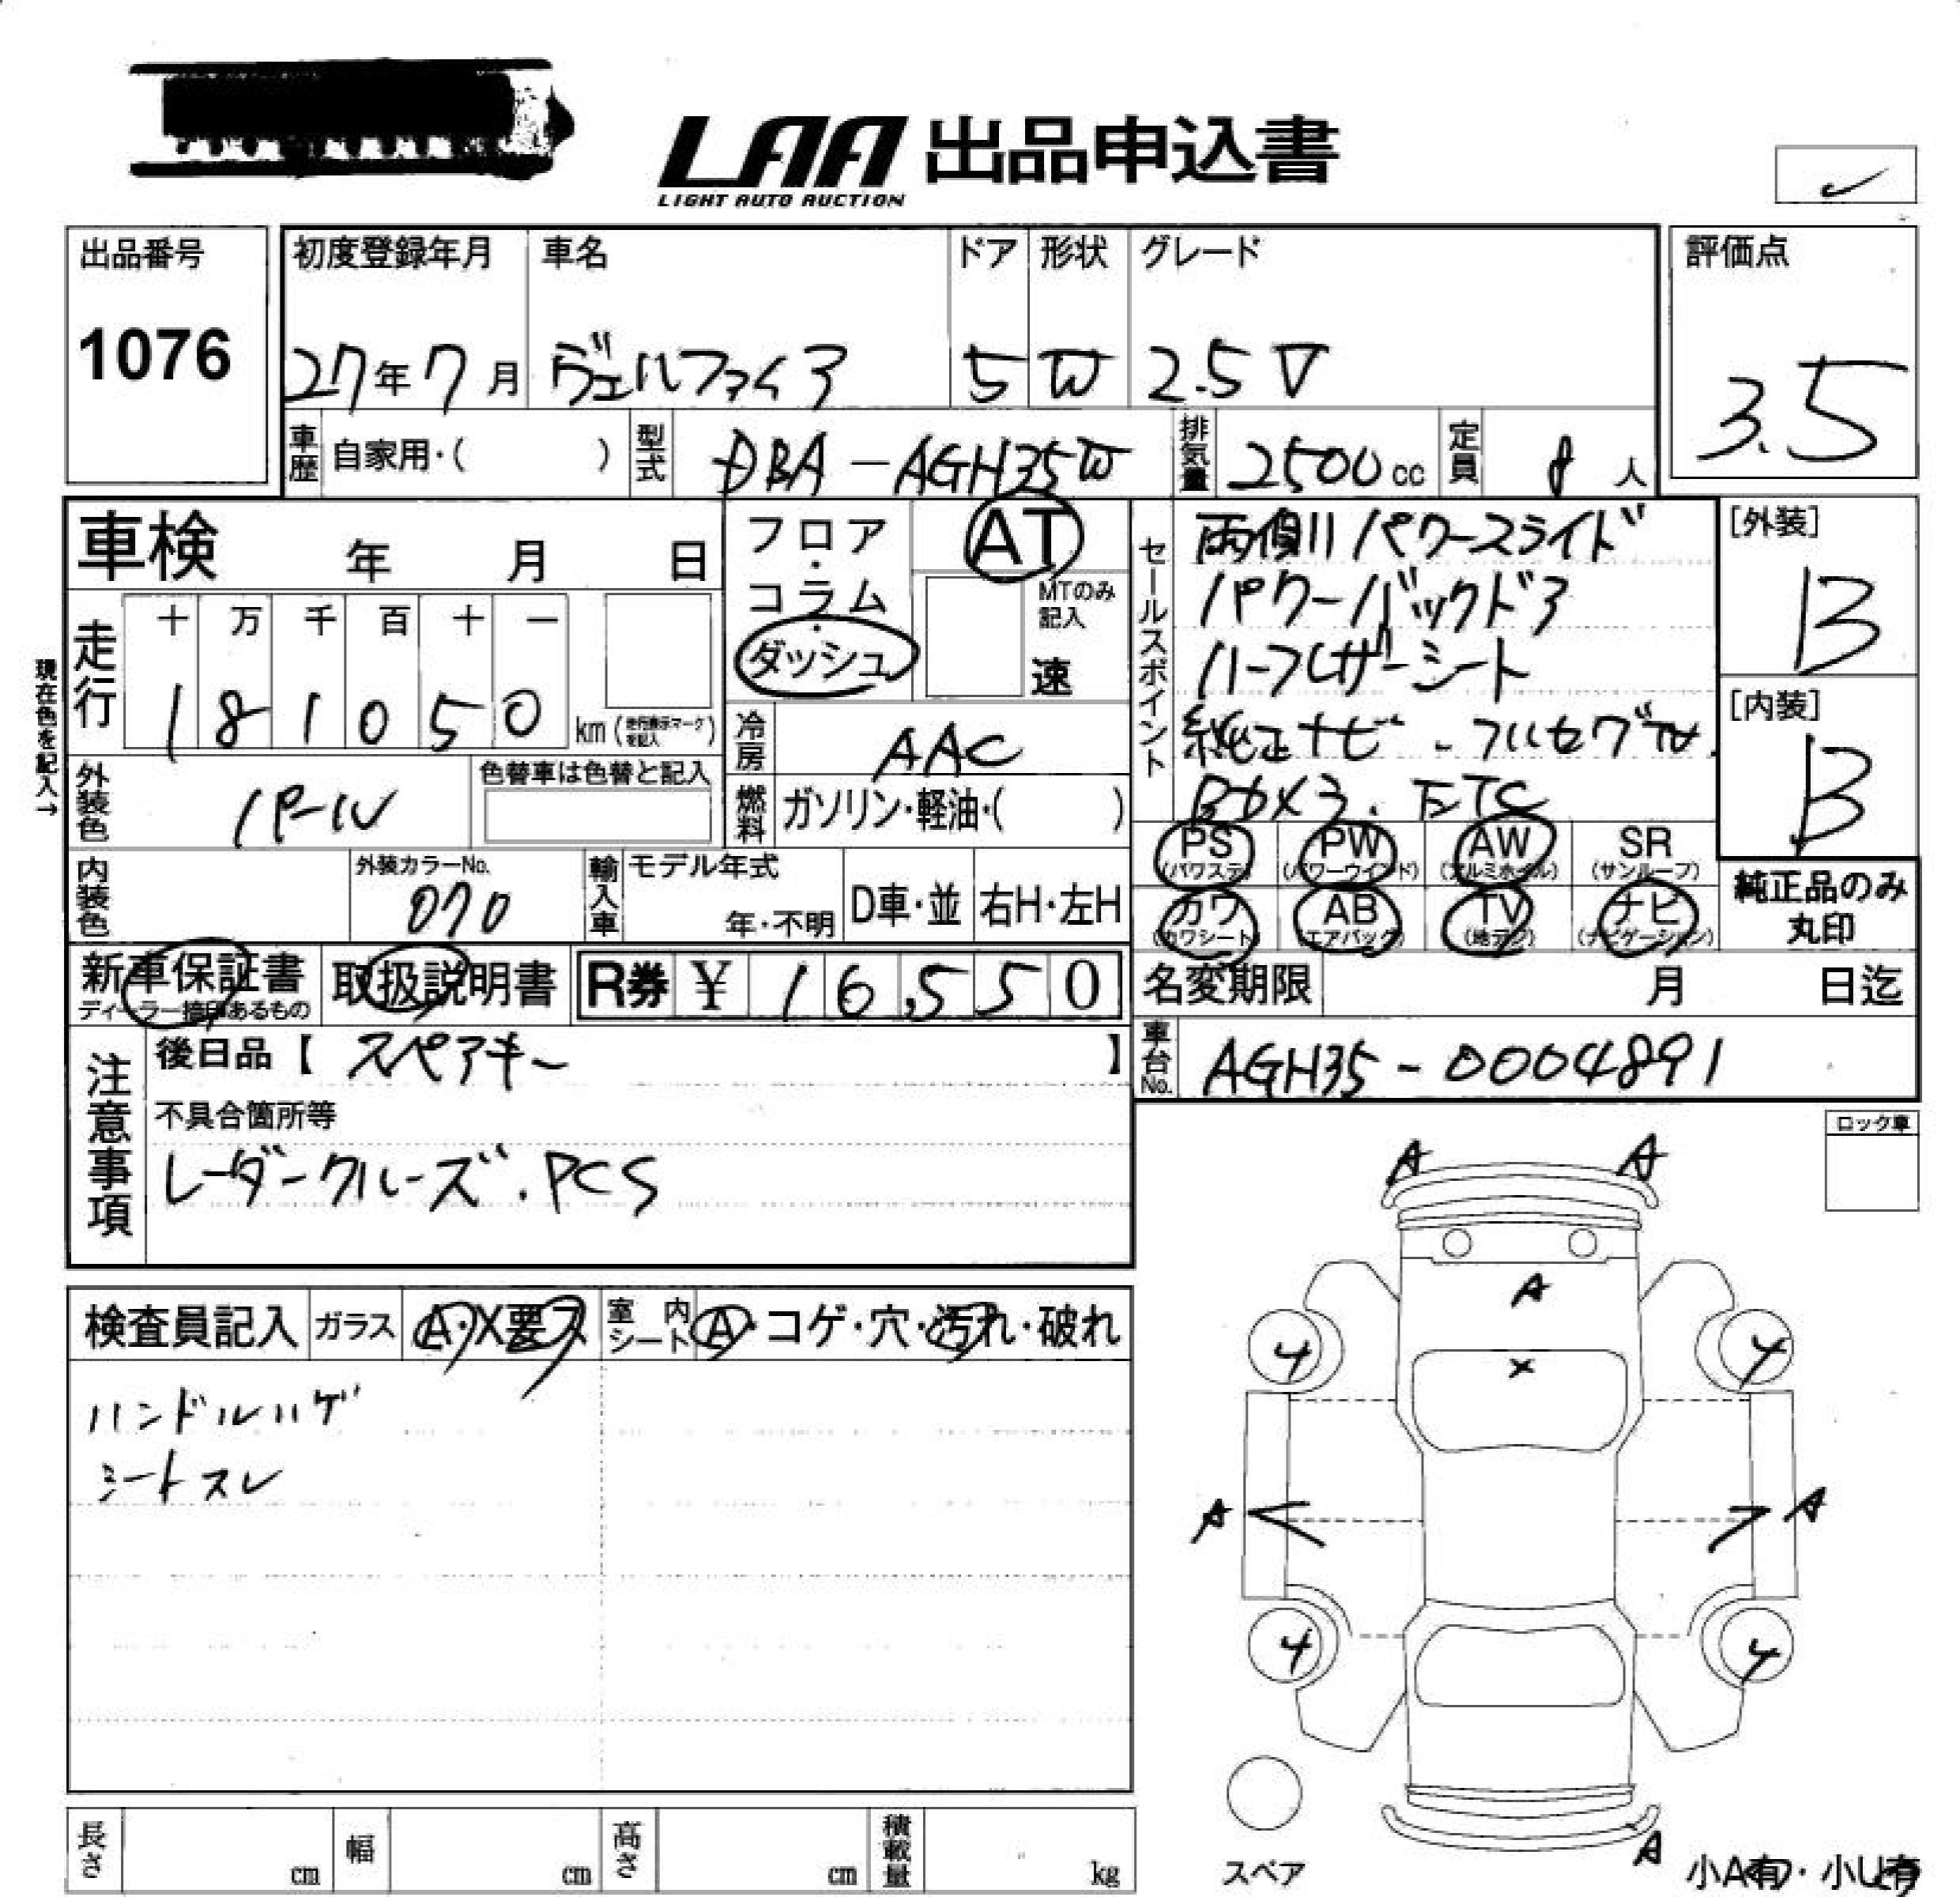 LAA 出品申込書
LIGHT AUTO AUCTION
出品番号
1076
初度登録年月
27年7月
車名
ヴェルファイア
ドア
5
形状
W
グレード
2.5 V
評価点
3.5
車歴 自家用・( )
型式 DBA-AGH35W
排気量 2500cc
定員 8人
車検 年 月 日
フロア・コラム・ダッシュ
AT
MTのみ記入
速
セールスポイント
両側パワースライド
パワーバックドア
ハーフレザーシート
純正ナビ・フルセグTV.
Bカメラ. ETC
[外装]
B
[内装]
B
現在色を記入→
走行
十 万 千 百 十 一
1 8 1 0 5 0 km (走行表示マークを記入)
冷房 AAC
外装色 パール
色替車は色替と記入
燃料 ガソリン・軽油・( )
内装色
外装カラーNo.
070
輸入車
モデル年式
年・不明
D車・並
右H・左H
PS (パワステ)
PW (パワーウインド)
AW (アルミホイル)
SR (サンルーフ)
カワ (カワシート)
AB (エアバック)
TV (地デジ)
ナビ (ナビゲーション)
純正品のみ丸印
新車保証書
ディーラー捺印あるもの
取扱説明書
R券 ¥ 16,550
名変期限 月 日迄
車台No. AGH35-0004891
注意事項
後日品【 スペアキー 】
不具合箇所等
レーダークルーズ.PCS
ロック車
検査員記入
ガラス A・X要ス
室内シート A・コゲ・穴・汚れ・破れ
ハンドルハゲ
シートスレ
A A
A
4 X 4
A A
4 4
A
スペア
小A有・小U有
長さ cm
幅 cm
高さ cm
積載量 kg